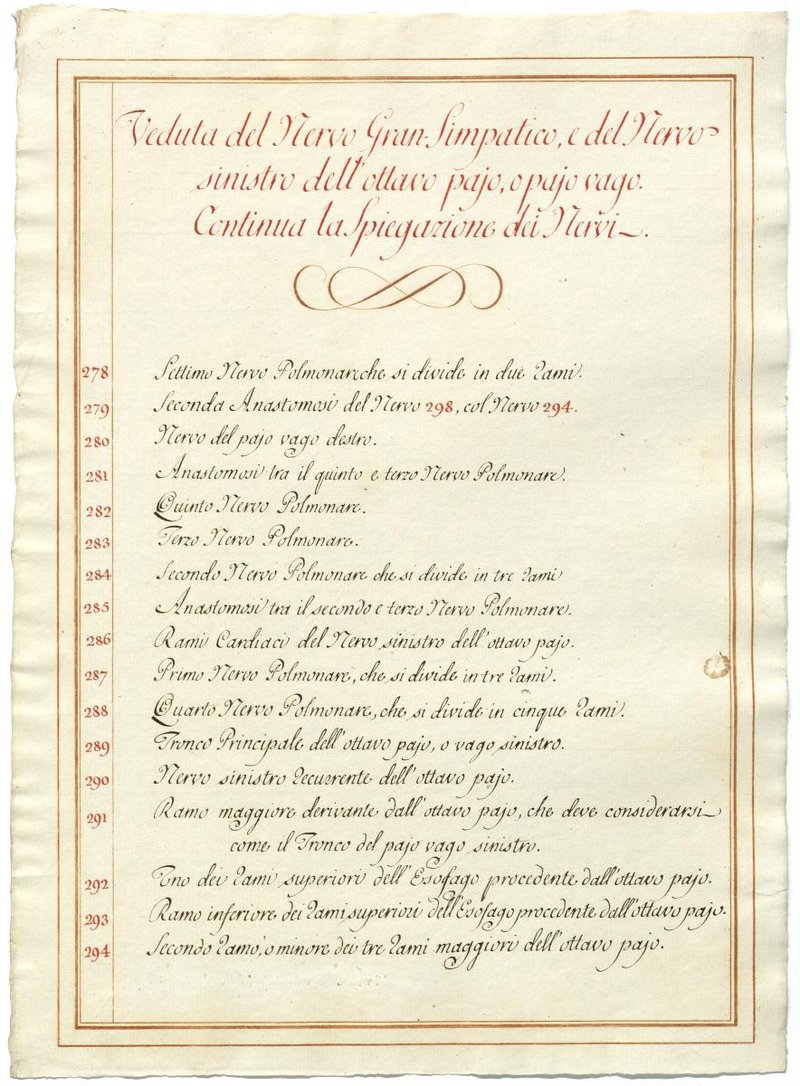 Veduta del Nervo Gran-Simpatico, e del Nervo
sinistro dell'ottavo pajo, o pajo vago.
Continua la Spiegazione dei Nervi.
278 Settimo Nervo Polmonare che si divide in due rami.
279 Seconda Anastomosi del Nervo 298, col Nervo 294.
280 Nervo del pajo vago destro.
281 Anastomosi tra il quinto e terzo Nervo Polmonare.
282 Quinto Nervo Polmonare.
283 Terzo Nervo Polmonare.
284 Secondo Nervo Polmonare che si divide in tre rami
285 Anastomosi tra il secondo e terzo Nervo Polmonare.
286 Rami Cardiaci del Nervo sinistro dell'ottavo pajo.
287 Primo Nervo Polmonare, che si divide in tre rami.
288 Quarto Nervo Polmonare, che si divide in cinque rami.
289 Tronco Principale dell'ottavo pajo, o vago sinistro.
290 Nervo sinistro recurrente dell'ottavo pajo.
291 Ramo maggiore derivante dall'ottavo pajo, che deve considerarsi
come il Tronco del pajo vago sinistro.
292 Uno dei rami superiori dell'Esofago procedente dall'ottavo pajo.
293 Ramo inferiore dei rami superiori dell'Esofago procedente dall'ottavo pajo.
294 Secondo ramo, o minore dei tre rami maggiori dell'ottavo pajo.